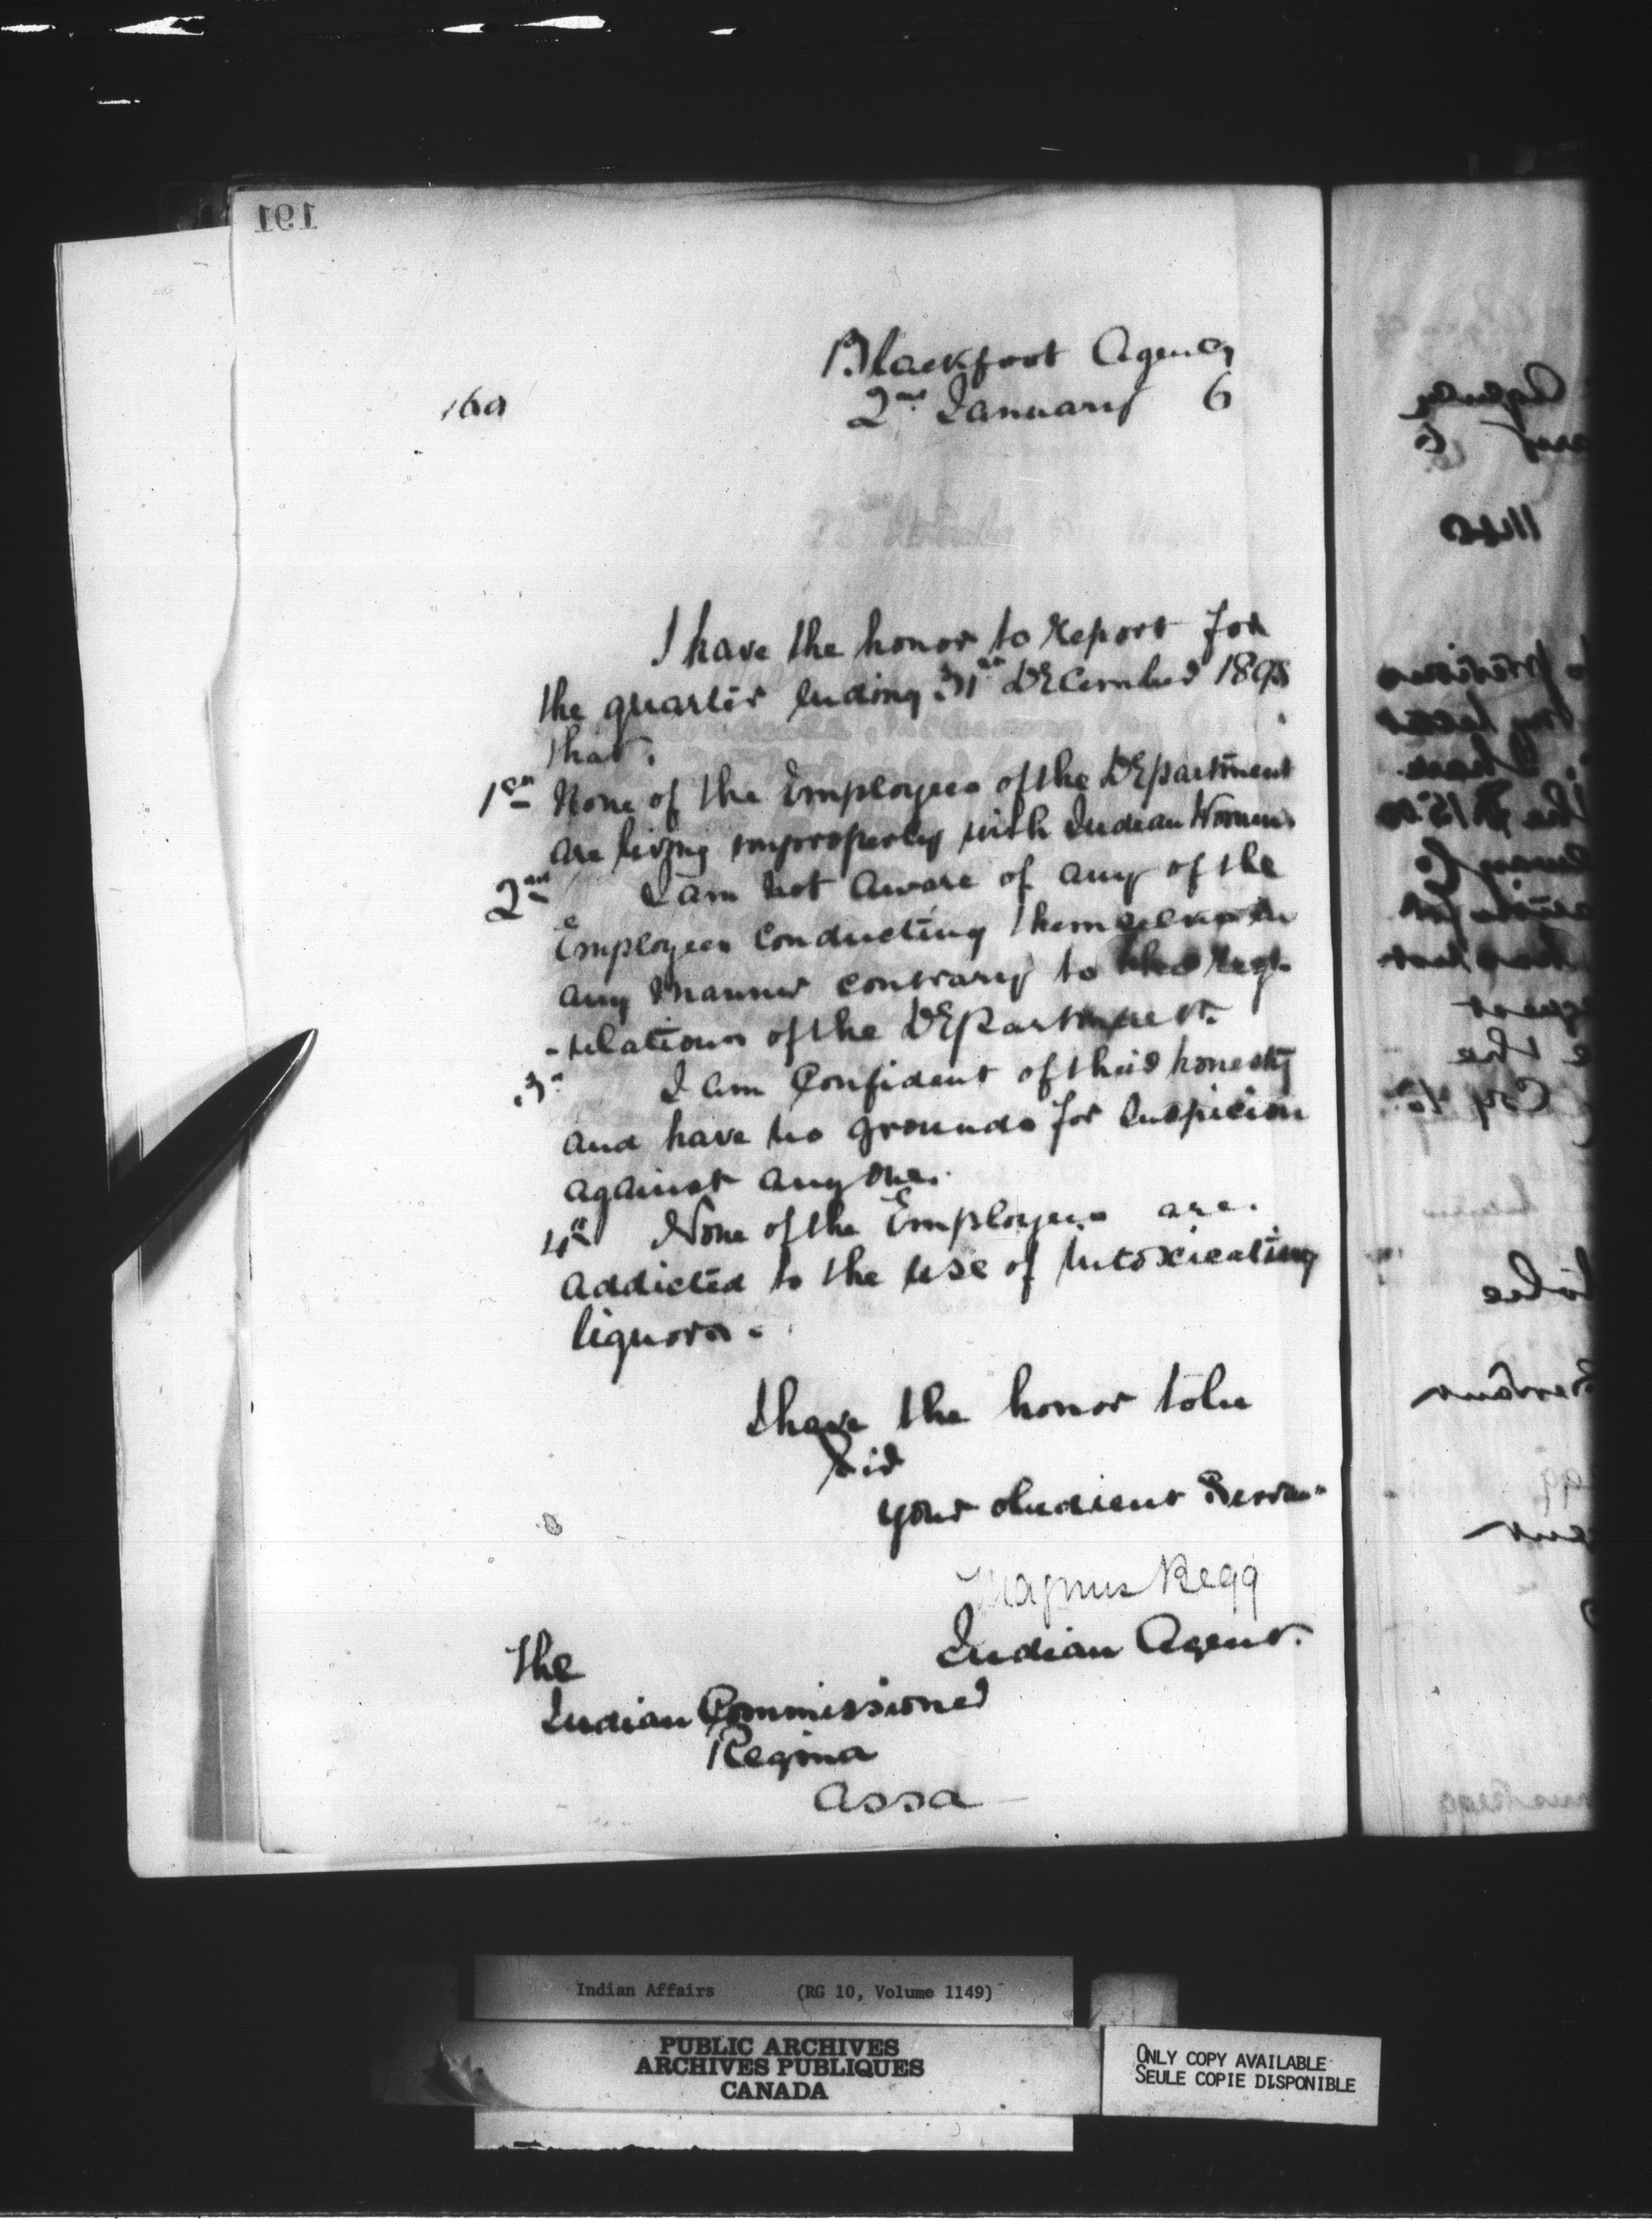 191
Blackfoot Agency
169
2nd January 6
I have the honor to report for
the quarter ending 31st December 1895
that.
1st None of the Employees of the Department
are living improperly with Indian Women.
2nd I am not aware of any of the
Employees conducting themselves in
any manner contrary to the regu
-ulations of the Department.
3rd I am Confident of their honesty
and have no grounds for Suspicion
against any one.
4th None of the Employees are
addicted to the use of intoxicating
liquors.
I have the honor to be
Sir
your obedient Servant
Magnus Begg
Indian Agent.
The
Indian Commissioner
Regina
Assa
Indian Affairs (RG 10, Volume 1149)
PUBLIC ARCHIVES
ARCHIVES PUBLIQUES
CANADA
ONLY COPY AVAILABLE
SEULE COPIE DISPONIBLE